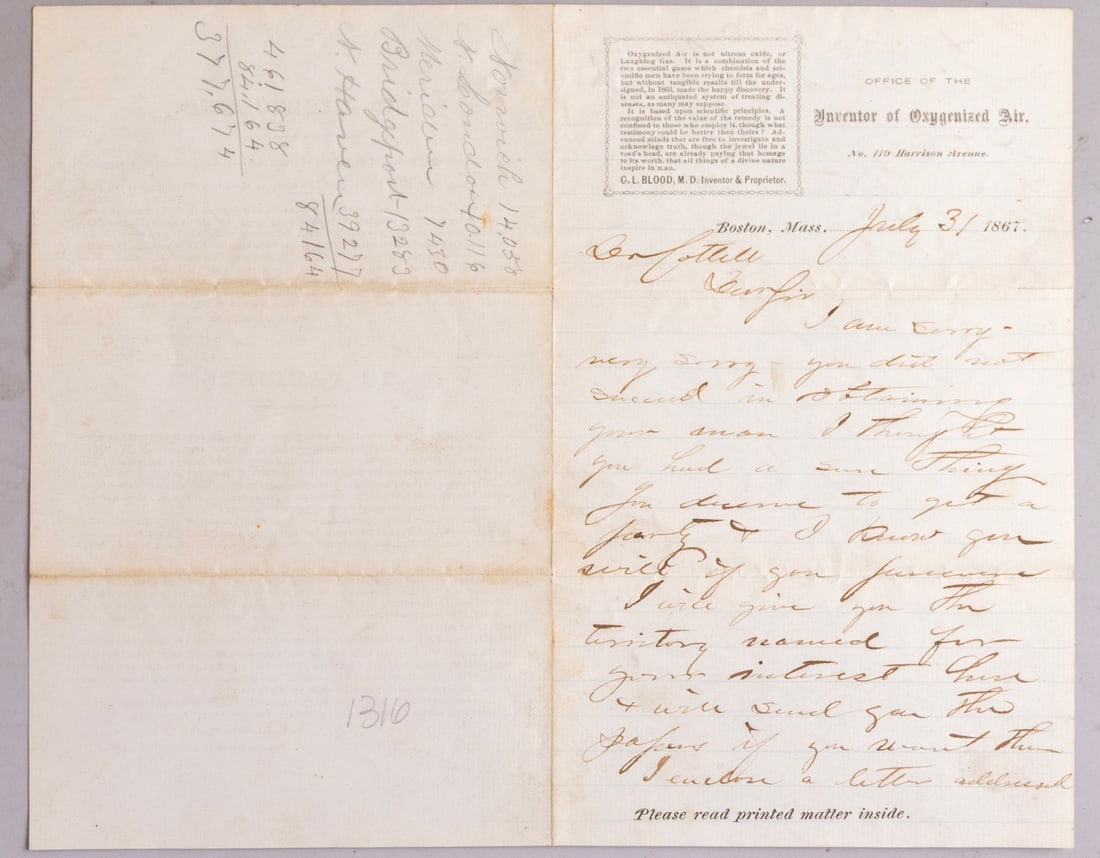 Norwich 14,058
N. London 10,116
Meriden 7430
Bridgeport 13283
N. Haven 39277
84164
461898
84,164
377,674
1316
Oxygenized Air is not nitrous oxide, or
Laughing Gas. It is a combination of the
two essential gases which chemists and sci-
entific men have been trying to form for ages,
but without tangible results till the under-
signed, in 1863, made the happy discovery. It
is not an antiquated system of treating di-
seases, as many may suppose.
It is based upon scientific principles. A
recognition of the value of the remedy is not
confined to those who employ it, though what
testimony could be better than theirs? Ad-
vanced minds that are free to investigate and
acknowledge truth, though the jewel lie in a
toad's head, are already paying that homage
to its worth, that all things of a divine nature
inspire in man.
C. L. BLOOD, M. D. Inventor & Proprietor.
OFFICE OF THE
Inventor of Oxygenized Air.
No. 119 Harrison Avenue.
Boston, Mass. July 31 1867.
Dr Cottell
Dear Sir
I am sorry -
very sorry you did not
succeed in obtaining
your man I thought
you had a sure thing
You deserve to get a
party & I know you
will if you persevere
I will give you the
territory named for
your interest here
& will send you the
papers if you want them
I enclose a letter addressed
Please read printed matter inside.